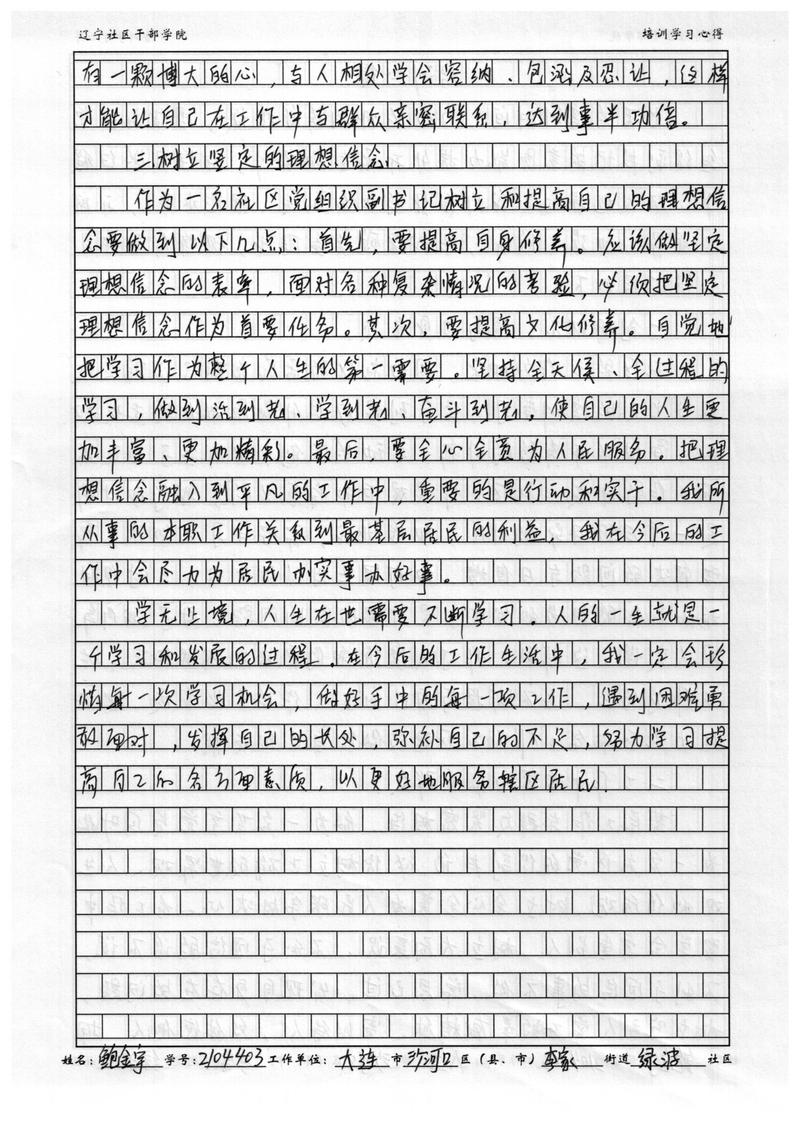 辽宁社区干部学院 培训学习心得
有一颗博大的心，与人相处学会容纳、包涵及忍让，这样
才能让自己在工作中与群众亲密联系，达到事半功倍。
三树立坚定的理想信念
作为一名社区党组织副书记树立和提高自己的理想信
念要做到以下几点：首先，要提高自身修养。应该做坚定
理想信念的表率，面对各种复杂情况的考验，必须把坚定
理想信念作为首要任务。其次，要提高文化修养。自觉地
把学习作为整个人生的第一需要。坚持全天候、全过程的
学习，做到活到老，学到老，奋斗到老，使自己的人生更
加丰富、更加精彩。最后，要全心全意为人民服务。把理
想信念融入到平凡的工作中，重要的是行动和实干。我所
从事的本职工作关系到最基层居民的利益，我在今后的工
作中会尽力为居民办实事办好事。
学无止境，人生在世需要不断学习。人的一生就是一
个学习和发展的过程。在今后的工作生活中，我一定会珍
惜每一次学习机会，做好手中的每一项工作，遇到困难勇
敢面对，发挥自己的长处，弥补自己的不足，努力学习提
高自己的各方面素质，以更好地服务辖区居民.
姓名：鲍金宇 学号：2104403 工作单位：大连 市 沙河口 区（县、市） 街道 绿波 社区